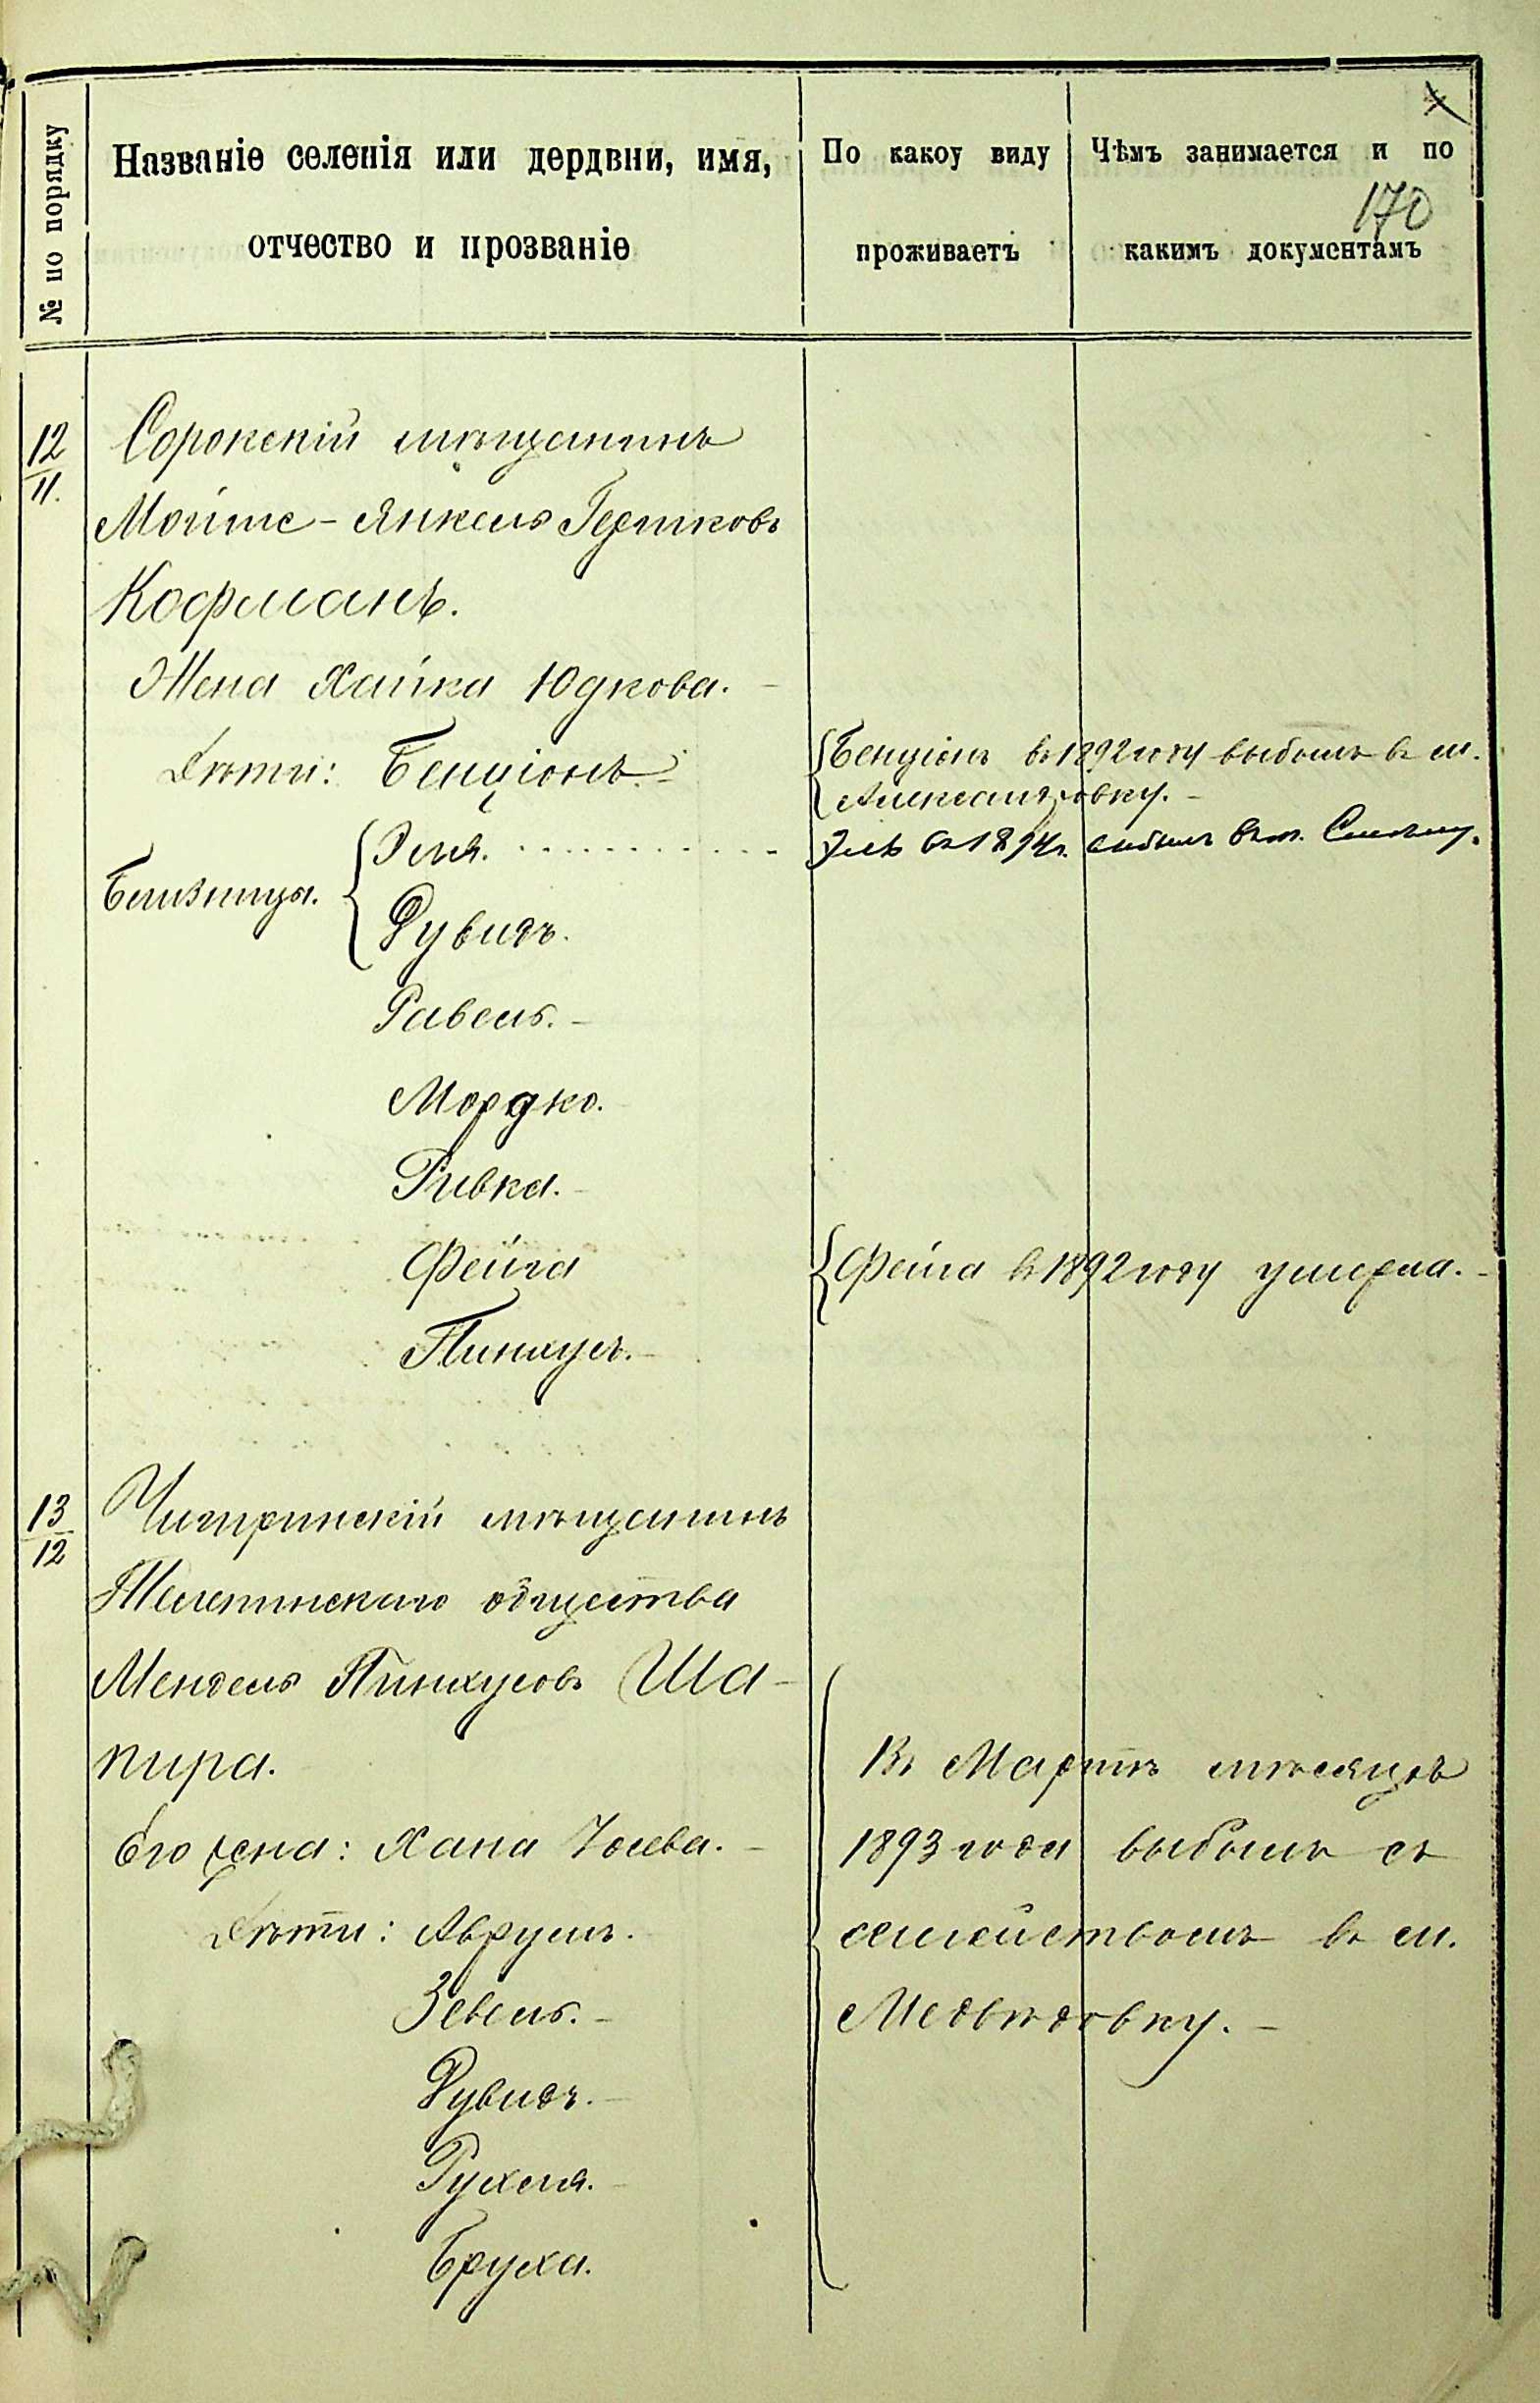 170
№ по порядку
Названіе селенія или дердвни, имя,
отчество и прозваніе
По какоу виду
проживаетъ
Чѣмъ занимается и по
какимъ документамъ
12
11.
Сорокскій мѣщанинъ
Мойше-Янкель Гершковъ
Кофманъ.
Жена Хайка Юдкова.
Дѣти: Бенціонъ.
Бенціонъ въ 1892 году выбылъ въ м.
Александровку.
Близнецы.
Эля.
Эля въ 1894 г. выбылъ въ м.
Рувинъ.
Равель.
Мордко.
Ривка.
Фейга
Фейга въ 1892 году умерла.
Пинхусъ.
13
12
Чигиринскій мѣщанинъ
общества
Мендель Пинхусовъ Ша-
пира.
Его жена: Хана
Дѣти: Аврумъ.
Зевель.
Рувинъ.
Рухля.
Бруха.
Въ Мартѣ мѣсяцѣ
1893 года выбылъ съ
семействомъ въ м.
Медвѣдовку.